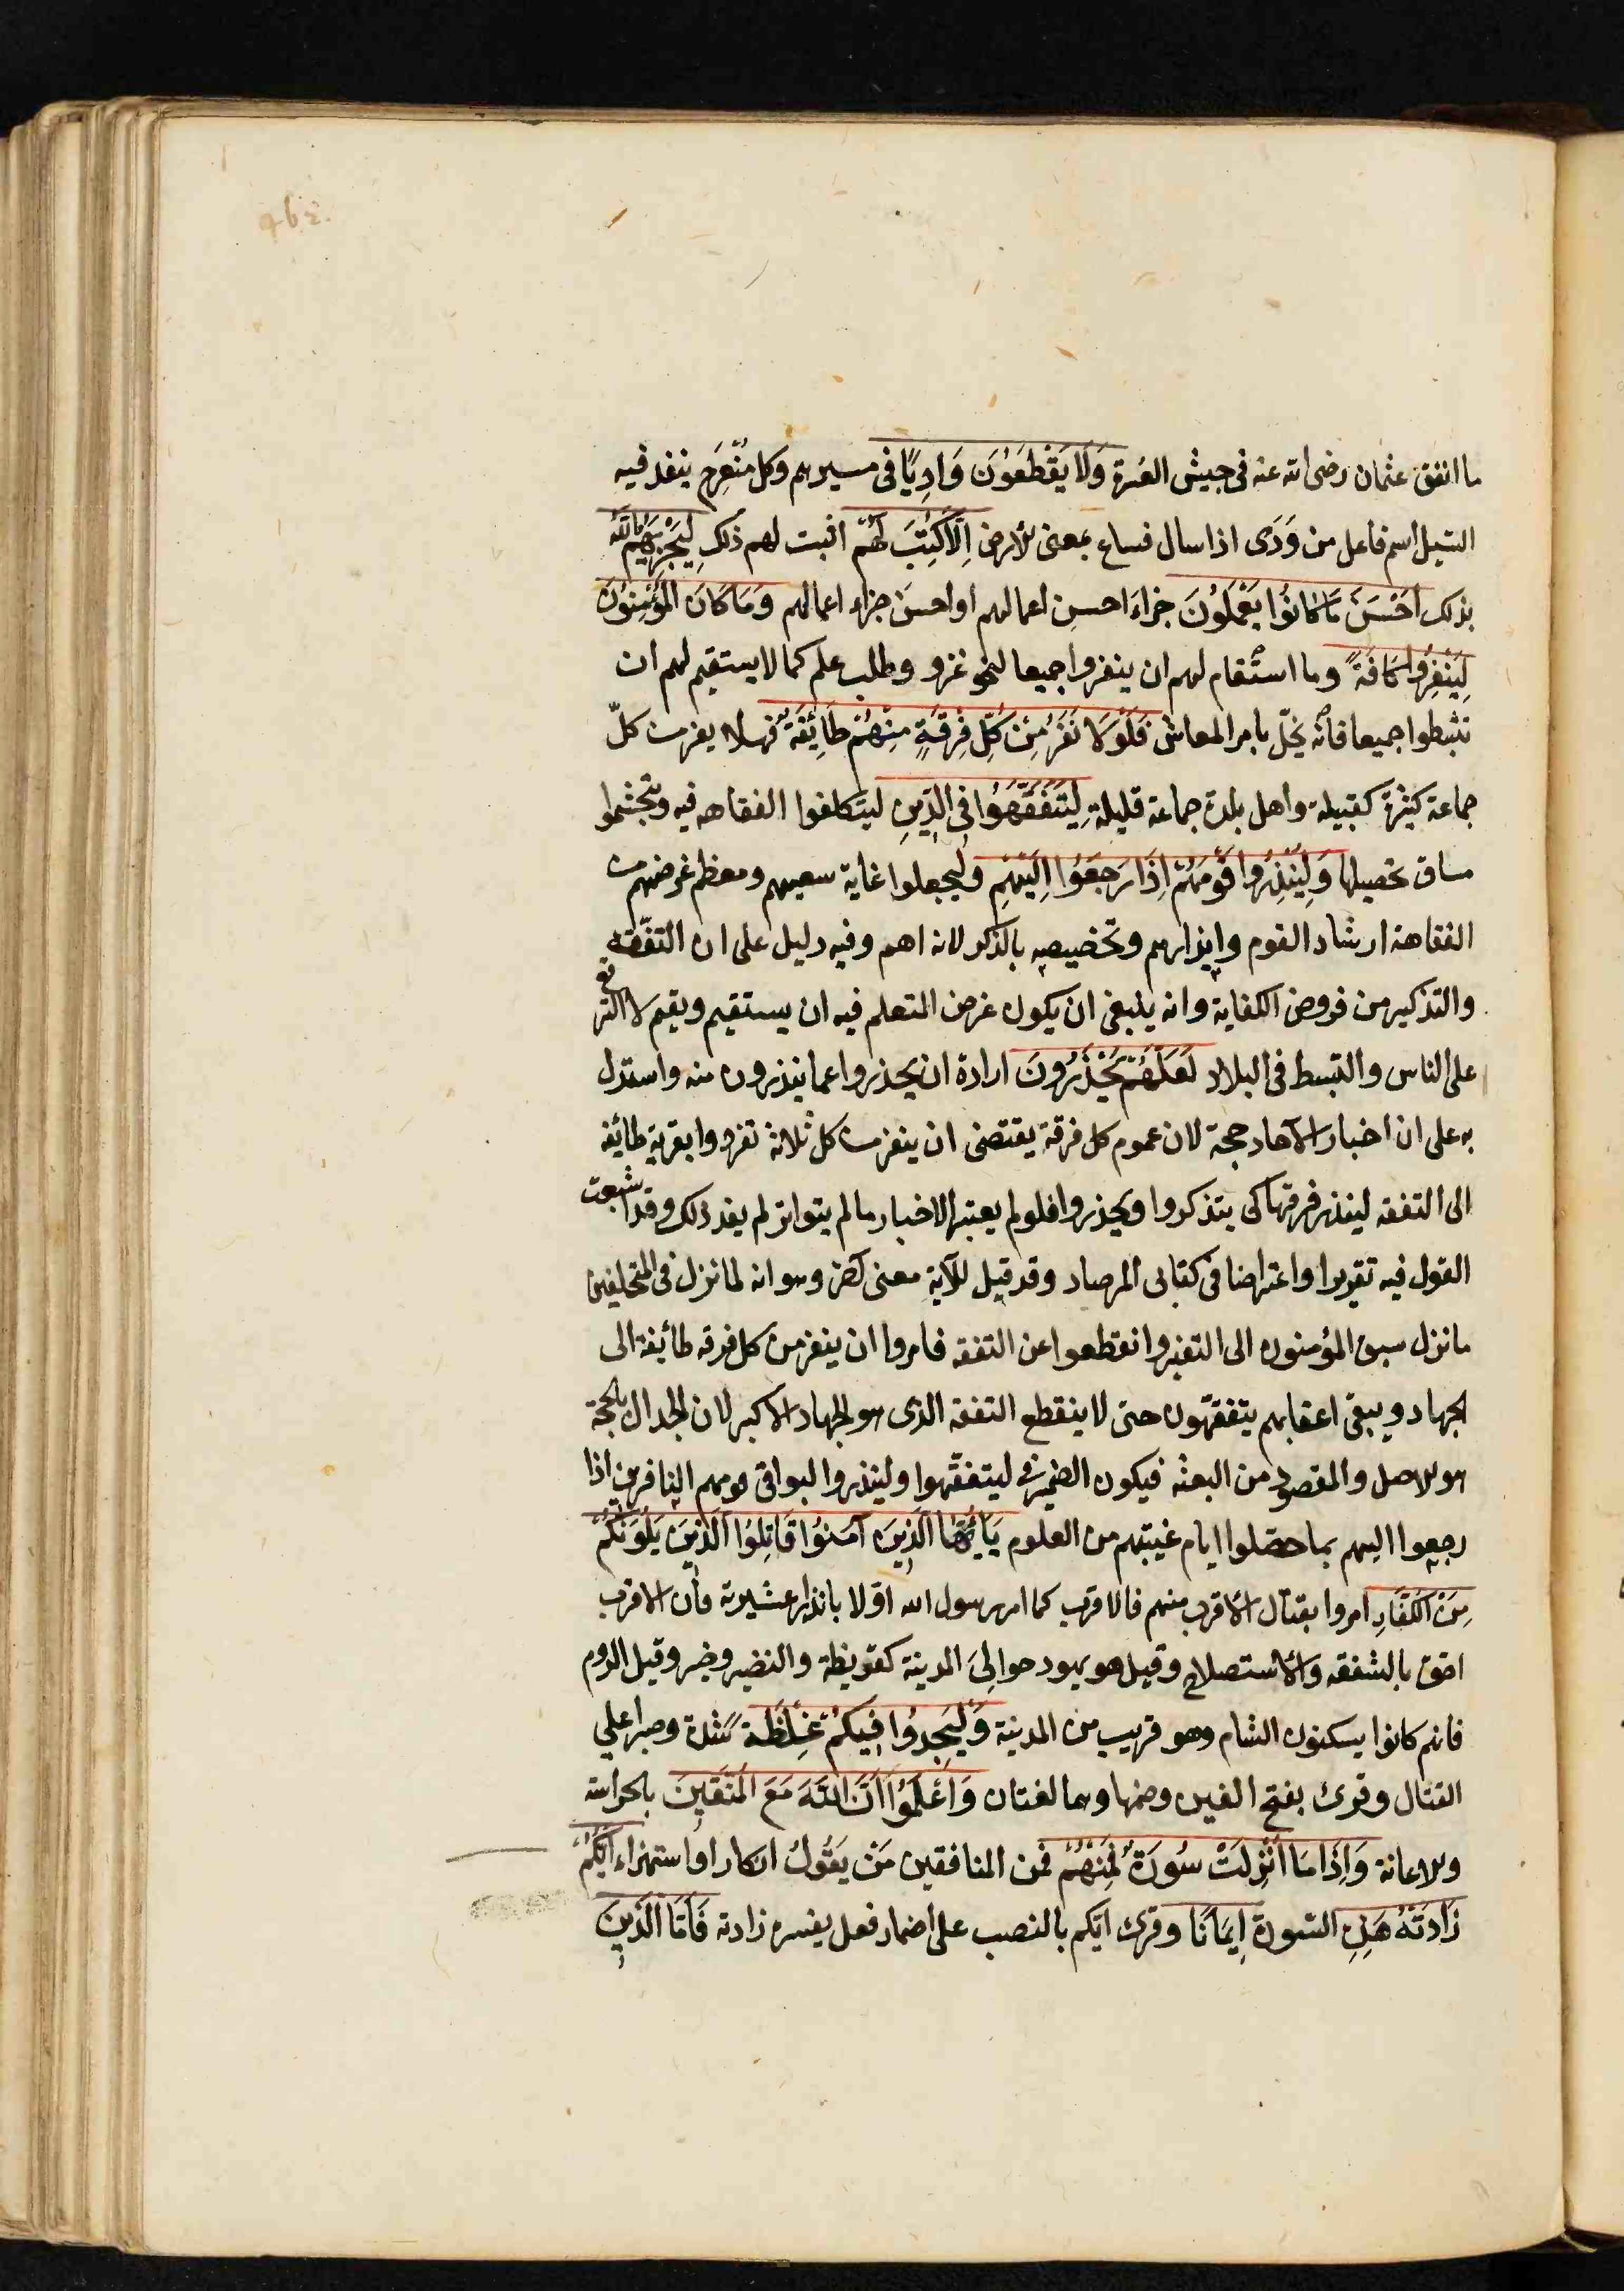 ما انفق عثمان رضى الله عنه فى جيش العسرة وَلَا يَقْطَعُوْنَ وَادِيًا فى مسيرهم وكل منعرج ينفذ فيه
السيل اسم فاعل من وَدَى اذا سال فساع بمعنى للأرض اِلَّا كُتِبَ لَهُمْ اثبت لهم ذلك لِيَجْزِيَهُمُ اللّٰهُ
بذلك اَحْسَنَ مَا كَانُوْا يَعْمَلُوْنَ جزاءَ احسنِ اعمالهم او احسنَ جزاءِ اعمالهم وَمَا كَانَ الْمُؤْمِنُوْنَ
لِيَنْفِرُوْا كَافَّةً وما استقام لهم ان ينفروا جميعا لنحو غزو وطلب علم كما لا يستقيم لهم ان
تثبطوا جميعا فانّه يخلّ بامر المعاش فَلَوْلَا نَفَرَ مِنْ كُلِّ فِرْقَةٍ مِنْهُمْ طَائِفَةٌ فهلا نفر من كلّ
جماعة كثيرة كقبيلة واهل بلدة جماعة قليلة لِيَتَفَقَّهُوا فِى الدِّينِ ليتكلفوا الفقاهه فيه ويتجشموا
مساق تحصيلها وَلِيُنْذِرُوا قَوْمَهُمْ اِذَا رَجَعُوْا اِلَيْهِمْ وليجعلوا غاية سعيهم ومعظم غرضهم من
الفقاهة ارشاد القوم وانذارهم وتخصيصه بالذكر لانه اهم وفيه دليل على ان التفقّه
والتذكير من فروض الكفاية وانه ينبغى ان يكون غرض المتعلم فيه ان يستقيم ويقيم لا الترفع
على الناس والتبسط فى البلاد لَعَلَّهُمْ يَحْذَرُونَ ارادة ان يحذروا عما ينذرون منه واستدل
به على ان اخبار الآحاد حجة لان عموم كل فرقة يقتضى ان ينفر من كل ثلاثة تفردوا بقرية طائفه
الى التفقه لينذر فرقتها كى يتذكروا ويحذروا فلو لم يعتبر الاخبار ما لم يتواتر لم يفد ذلك وقد اشبعت
القول فيه تقريرا واعتراضا فى كتابى المرصاد وقد قيل للآية معنى آخر وهو انه لما نزل فى المتخلفين
ما نزل سبق المؤمنون الى النفير وانقطعوا عن التفقه فامروا ان ينفر من كل فرقه طائفة الى
الجهاد ويبقى اعقابهم يتفقهون حتى لا ينقطع التفقه الذى هو الجهاد الاكبر لان الجدال بالحجة
هو الاصل والمقصود من البعثه فيكون الضمير فى ليتفقّهوا ولينذروا لبواقى قومهم النافرين اذا
رجعوا اليهم بما حصّلوا ايام غيبتهم من العلوم يَاأَيُّهَا الَّذِينَ آمَنُوْا قَاتِلُوْا الَّذِيْنَ يَلُوْنَكُمْ
مِنَ الْكُفَّارِ امروا بقتال الاقرب منهم فالاقرب كما امر رسول الله اوّلا بانذار عشيرته فان الاقرب
احق بالشفقه والاستصلاح وقيل هو يهود حوالىَ المدينة كقريظة والنضير وخيبر وقيل الروم
فانهم كانوا يسكنون الشام وهو قريب من المدينة وَلْيَجِدُوا فِيكُمْ غِلْظَةً شدة وصبرا على
القتال وقرئ بفتح الغين وضمها وهما لغتان وَاعْلَمُوْا اَنَّ اللّٰهَ مَعَ الْمُتَّقِيْنَ بالحراسة
والاعانة وَاِذَا مَا اُنْزِلَتْ سُورَةٌ فَمِنْهُمْ فمن المنافقين مَنْ يَقُولُ انكارا واستهزاء اَيُّكُمْ
زَادَتْهُ هٰذِهِ السّورة اِيمَانًا وقرئ ايّكم بالنصب على اضمار فعل يفسره زادته فَاَمَّا الَّذِينَ